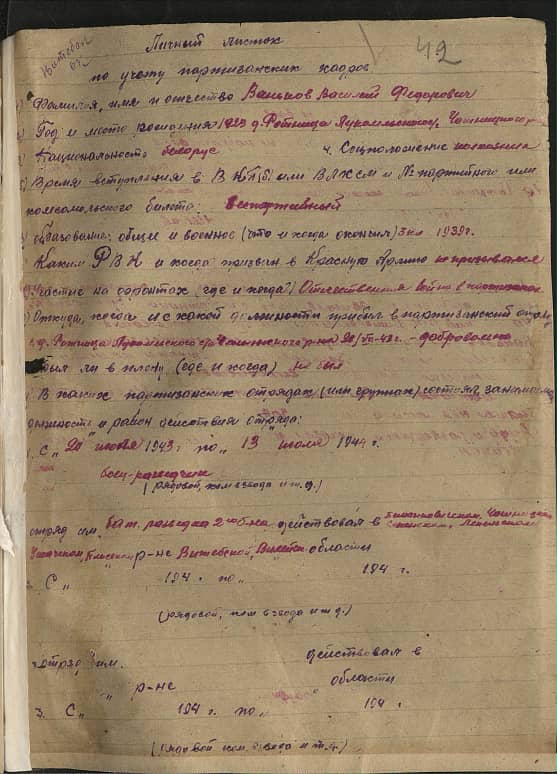 42
Личный листок
по учету партизанских кадров
Фамилия, имя и отчество Ваньков Василий Федорович
Год и место рождения 1923 д. Ротница Лукомльского, Чашницкого р
Национальность белорус 4. Соцположение
Время вступления в ВКП(б) или ВЛКСМ и № партийного или
комсомольского билета: беспартийный
образование: общее и военное (что и когда окончил) 3 кл 1939 г.
Каким РВК и когда призван в Красную Армию не призывался
Участие на фронтах (где и когда) Отечественная война
Откуда, когда и с какой должности прибыл в партизанский отряд
д. Ротница Лукомльского с/с Чашникского р-на 20/VI-43 г. - добровольно
был ли в плену (где и когда) не был
В каких партизанских отрядах (или группах) состоял, занимаемая
должность и район действия отряда:
1. С „20" июня 1943 г. по „13 июля 1944 г.
боец-разведчик
(рядовой, ком. взвода и т.д.)
отряд им. бат. разведка 2го б-на действовал в Чашницком
Ушачском, р-не Витебской, области
2. С „ 194 г. по „ 194 г.
(рядовой, ком. взвода и т.д.)
отряд им. действовал в
„ р-не области
3. С „ 194 г. по „ 194 г.
(рядовой ком. взвода и т.д.)